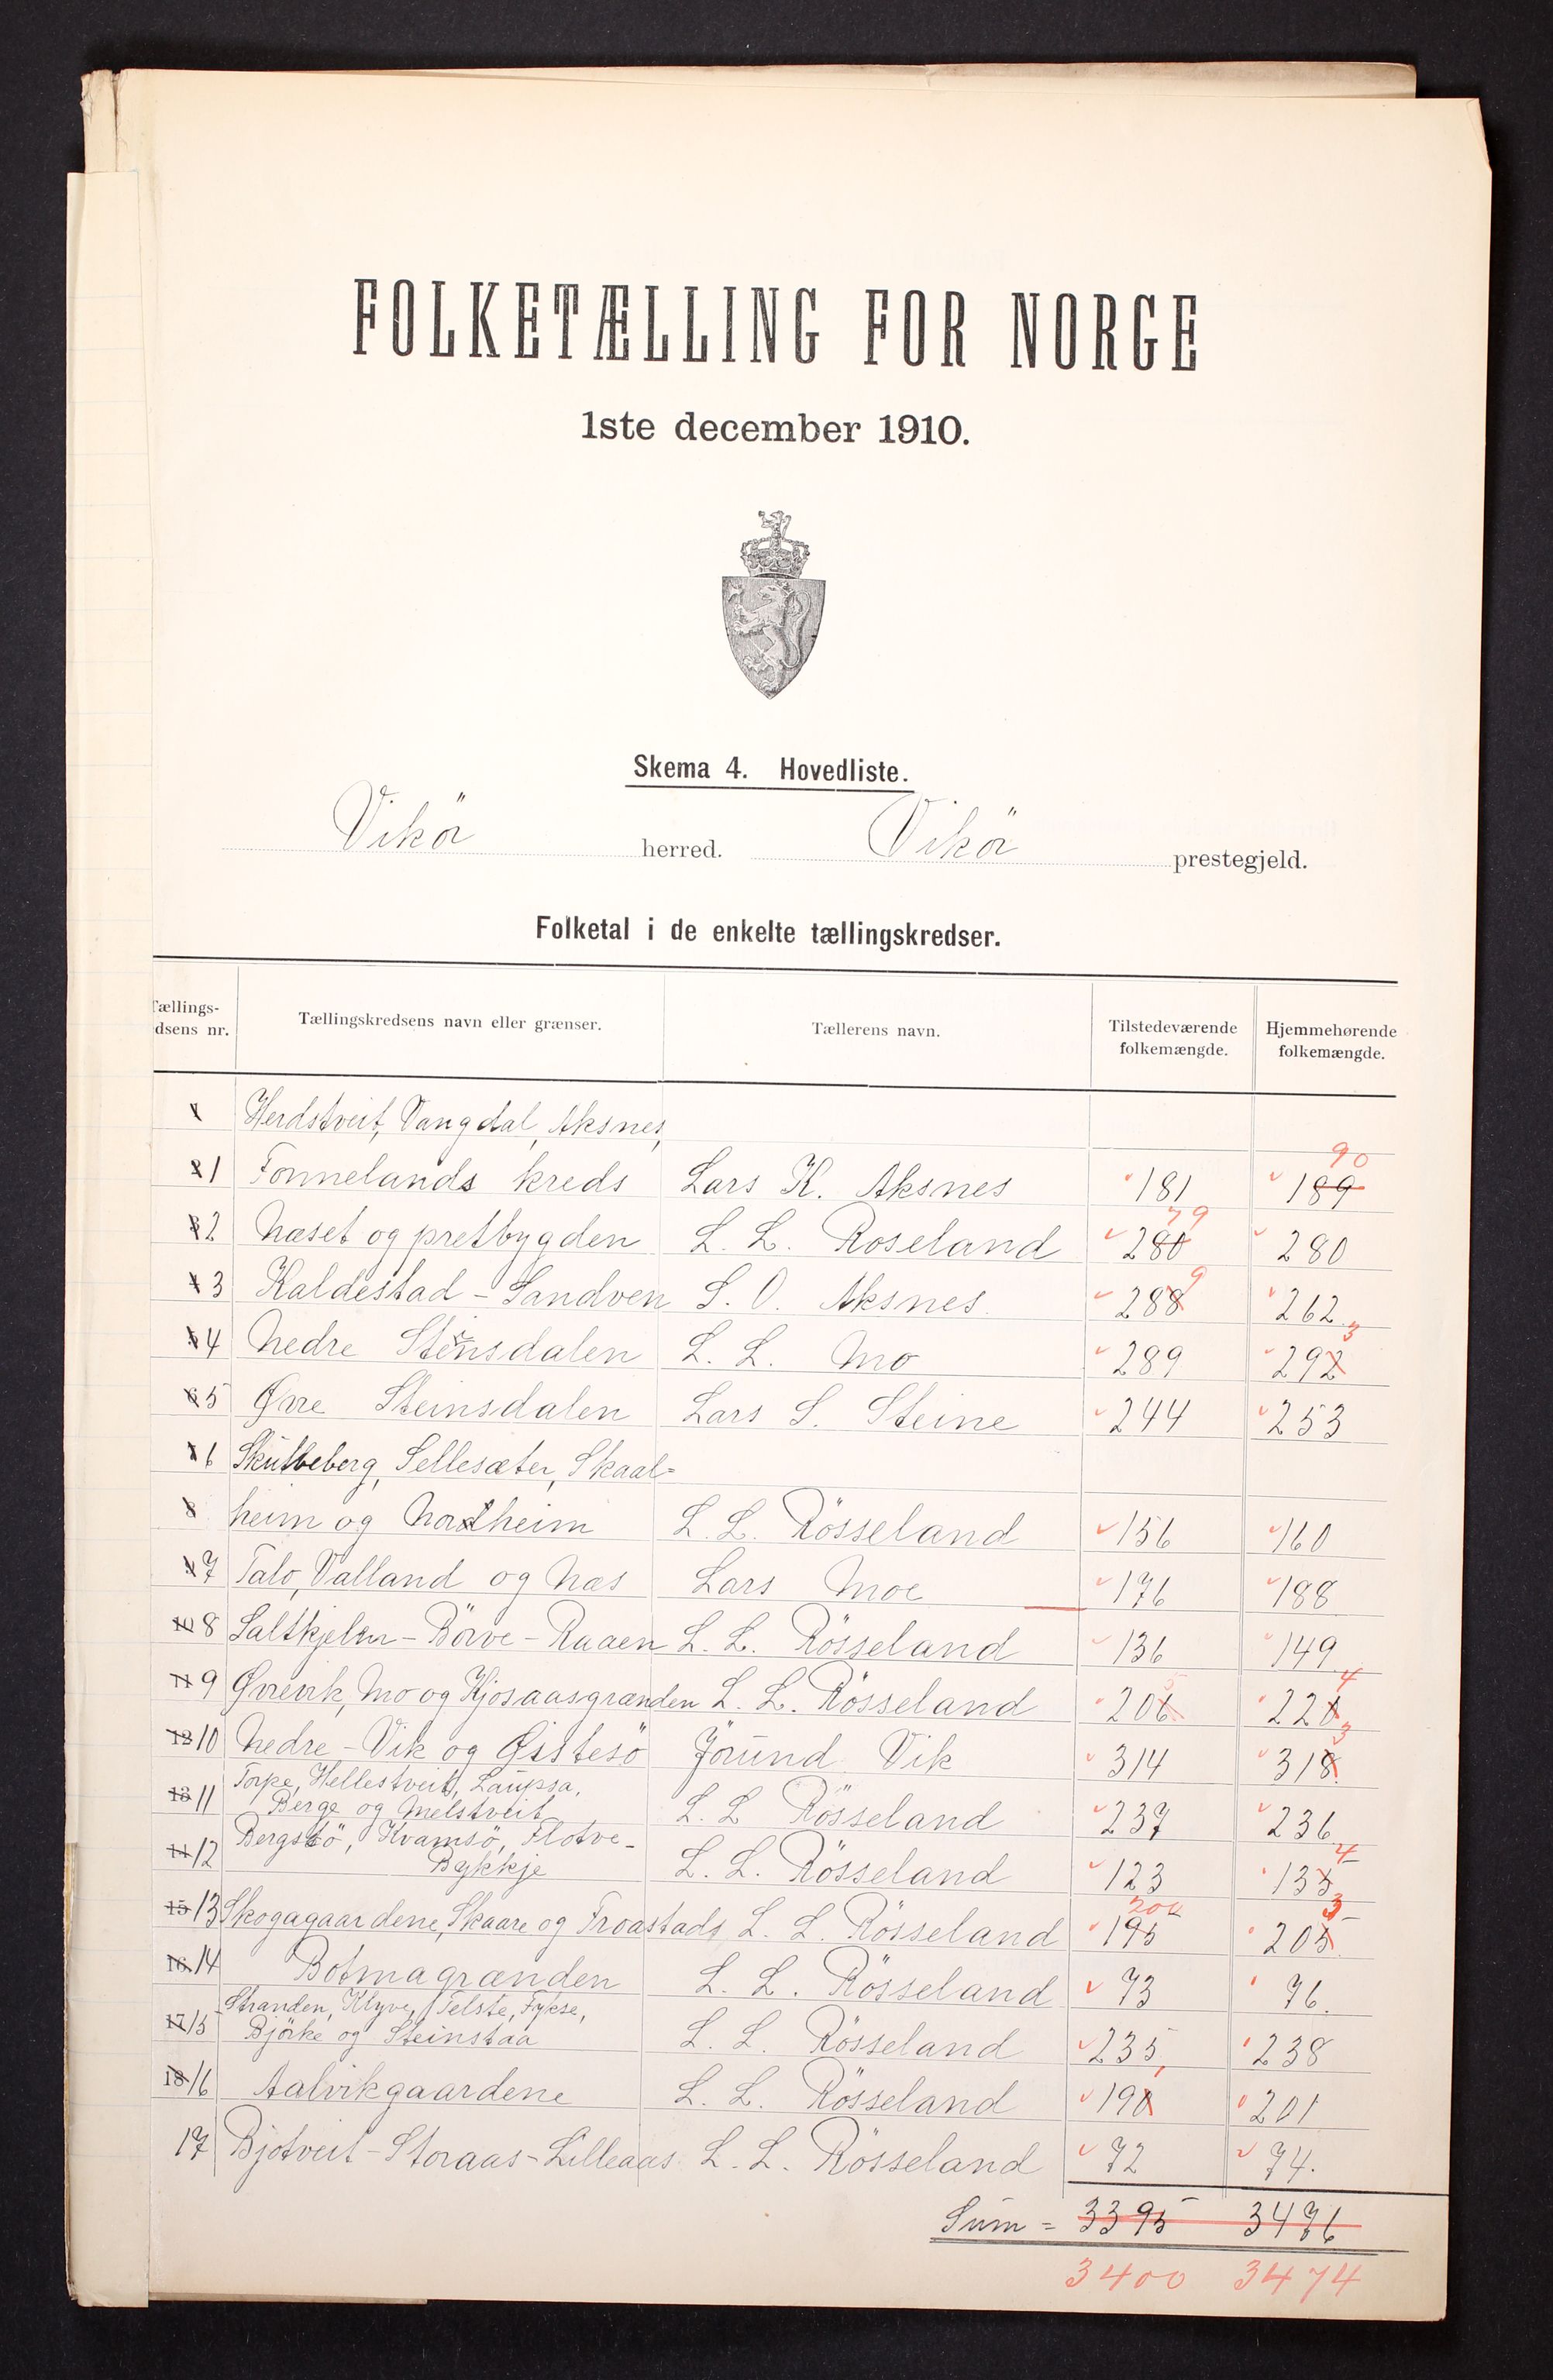 FOLKETÆLLING FOR NORGE
1ste december 1910.
Skema 4. Hovedliste.
Vikör herred. Vikör prestegjeld.
Folketal i de enkelte tællingskredser.
Tællings-
dsens nr.
Tællingskredsens navn eller grænser.
Tællerens navn.
Tilstedeværende
folkemængde.
Hjemmehørende
folkemængde.
1 Herdstveit, Vangdal, Aksnes,
90
2 1 Fonnelands kreds Lars K. Aksnes 181 189
79
3 2 Næset og pretbygden L. L. Roseland 280 280
9
4 3 Kaldestad - Sandven S. O. Aksnes 288 262
3
5 4 Nedre Steinsdalen L. L. Mo 289 292
6 5 Øvre Steinsdalen Lars S. Steine 244 253
7 6 Skutleberg, Sellesæter, Skaal=
8 heim og Nordheim L. L. Rösseland 156 160
9 7 Talo, Valland og Næs Lars Moe 176 188
10 8 Saltkjeln - Börve - Raaen L. L. Rösseland 136 149
5 4
11 9 Øvrevik, Mo og Kjosaasgrænden L. L. Rösseland 206 228
3
12 10 Nedre - Vik og Øistesö Jörund Vik 314 318
Torpe, Hellestveit, Laupsa,
13 11 Berge og Melstveit L. L Rösseland 237 236
Bergstö, Kvamsö, Flotve-
4
14 12 Bykkje L. L. Rösseland 123 135
200 3
15 13 Skogagaardene, Skaare og Troastads L. L. Rösseland 195 205
16 14 Botmagrænden L. L. Rösseland 73 76.
Stranden, Klyve, Telste, Fykse,
17 15 Björke og Steinstaa L. L. Rösseland 235 238
18 16 Aalvikgaardene L. L. Rösseland 190 201
17 Bjotveit - Storaas - Lilleaas L. L. Rösseland 72 74.
Sum = 3395 3476
3400 3474